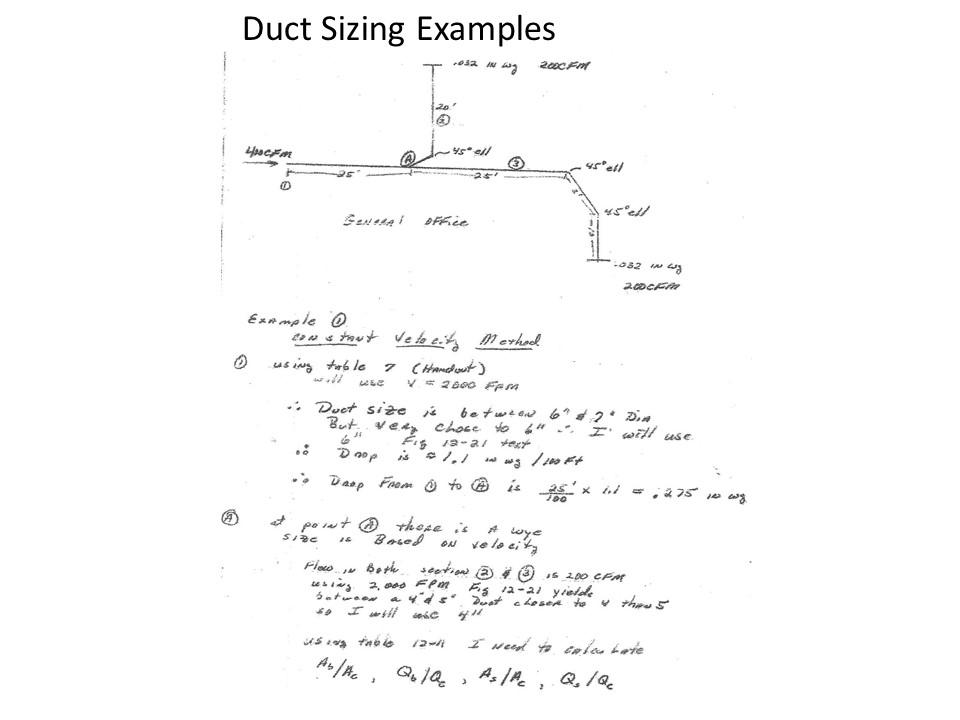 Duct Sizing Examples
.032 IN wg 200CFM
20'
②
400CFM
Ⓐ
45° ell
③
45° ell
25'
25'
①
45° ell
General Office
.032 IN wg
200CFM
Example ①
constant Velocity Method
① using table 7 (Handout)
will use V = 2000 FPM
∴ Duct size is between 6" & 7" Dia
But very close to 6" ∴ I will use
6" Fig 12-21 text
∴ Drop is ≈ 1.1 in wg /100 Ft
∴ Drop From ① to Ⓐ is 25'/100 x 1.1 = .275 in wg
Ⓐ at point Ⓐ there is A wye
size is Based on velocity
Flow in Both section ② & ③ is 200 CFM
using 2,000 FPM Fig 12-21 yields
between a 4" & 5" Duct closer to 4 than 5
so I will use 4"
using table 12-11 I need to calculate
Ab/Ac , Qb/Qc , As/Ac , Qs/Qc